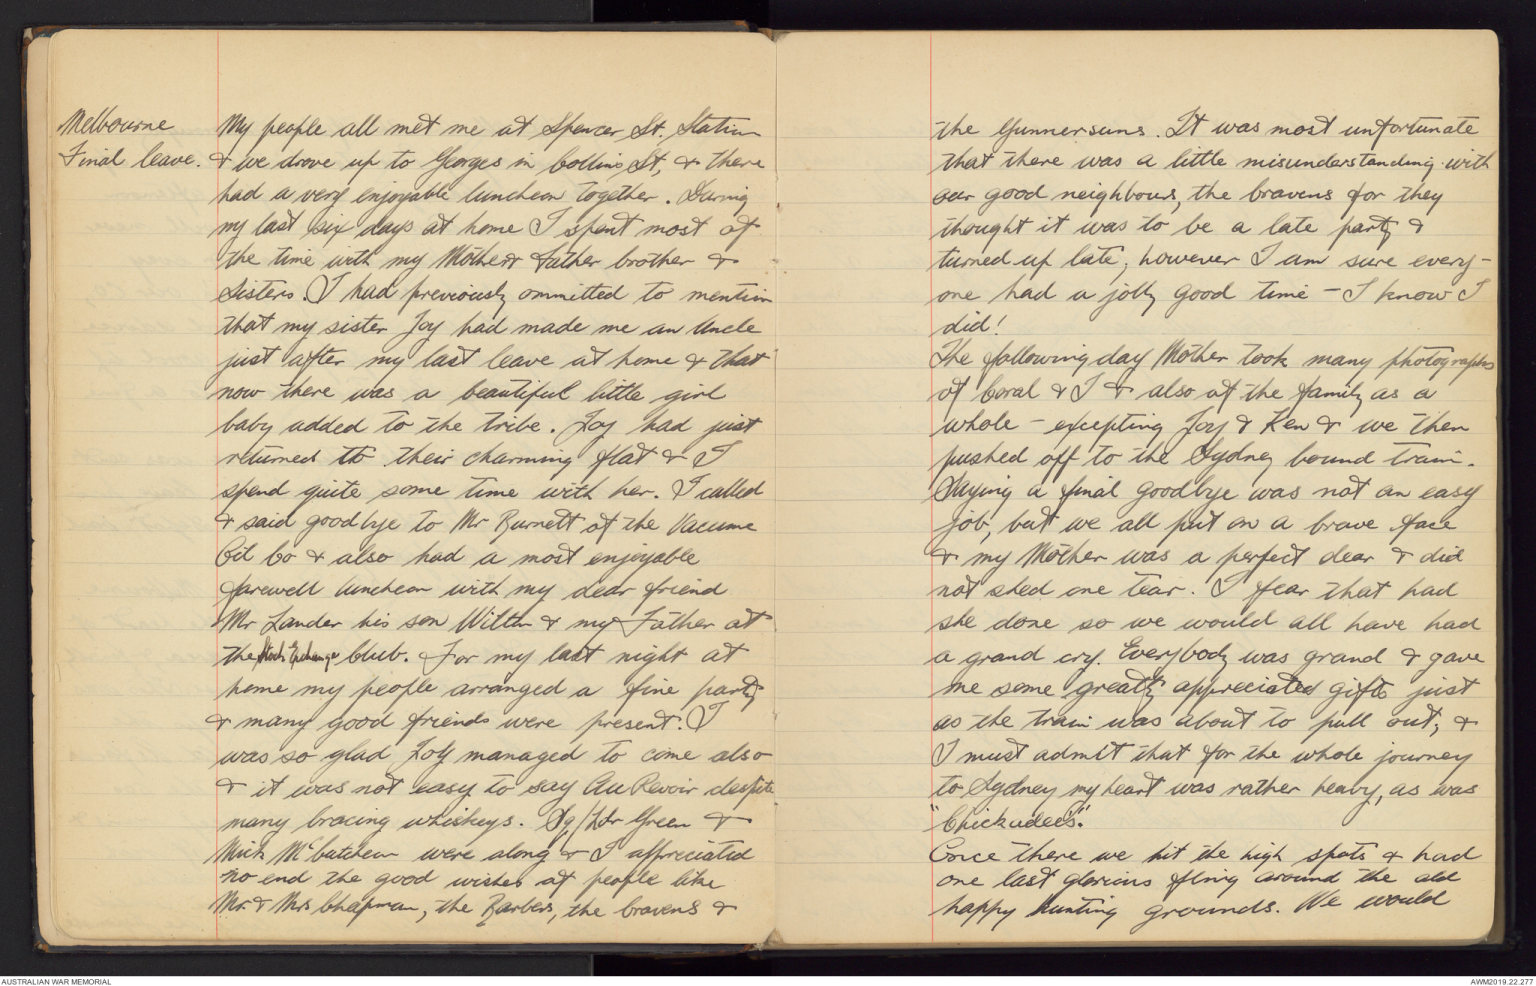 Melbourne
Final leave.
My people all met me at Spencer St. Station
& we drove up to Georges in Collins St, & there
had a very enjoyable luncheon together. During
my last six days at home I spent most of
the time with my Mother & Father brother &
Sisters. I had previously ommitted to mention
that my sister Joy had made me an Uncle
just after my last leave at home & that
now there was a beautiful little girl
baby added to the tribe. Joy had just
returned to their charming flat & I
spend quite some time with her. I called
& said goodbye to Mr Burnett of the Vacume
Oil Co & also had a most enjoyable
farewell luncheon with my dear friend
Mr Lander his son & my Father at
the Stock Exchange Club. For my last night at
home my people arranged a fine party
& many good friends were present. I
was so glad Joy managed to come also
& it was not easy to say Au Revoir despite
many bracing whiskeys. Sq/Ldr Green &
Mick McCutcheon were along & I appreciated
no end the good wishes of people like
Mr & Mrs Chapman, the Barbers, the Cravens &
the Gunnersens. It was most unfortunate
that there was a little misunderstanding with
our good neighbours, the Cravens for they
thought it was to be a late party &
turned up late, however I am sure every-
one had a jolly good time - I know I
did!
The following day Mother took many photographs
of Coral & I & also of the family as a
whole - excepting Joy & Ken & we then
pushed off to the Sydney bound train.
Saying a final goodbye was not an easy
job, but we all put on a brave face
& my Mother was a perfect dear & did
not shed one tear. I fear that had
she done so we would all have had
a grand cry. Everybody was grand & gave
me some greatly appreciated gifts just
as the train was about to pull out, &
I must admit that for the whole journey
to Sydney my heart was rather heavy, as was
"Chickadee's".
Once there we hit the high spots & had
one last glorious fling around the old
happy hunting grounds. We would
AUSTRALIAN WAR MEMORIAL
AWM2019.22.277